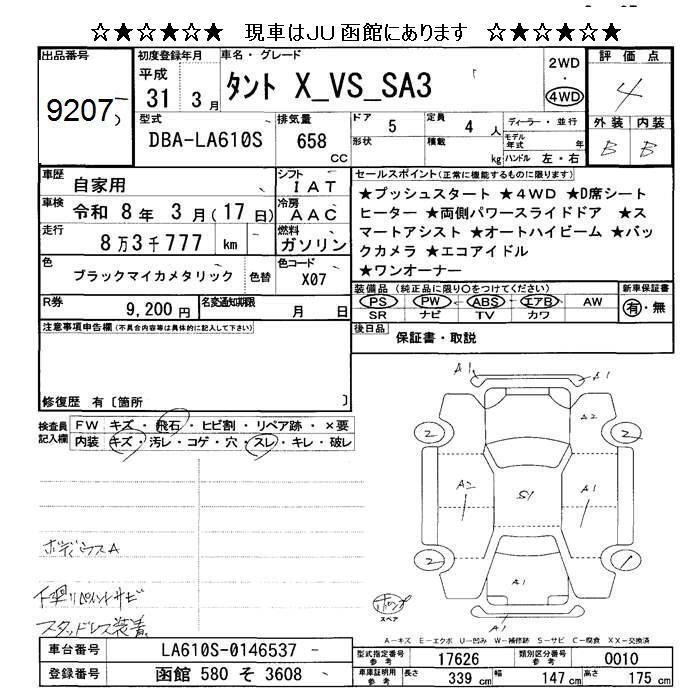 ☆★☆★☆★ 現車はJU函館にあります ☆★☆★☆★
出品番号 9207
初度登録年月 平成 31年 3月
車名・グレード タント X_VS_SA3
2WD・4WD
評価点 4
型式 DBA-LA610S
排気量 658 CC
ドア 5 定員 4 人
形状 積載 kg
ディーラー・並行
モデル年式 年
ハンドル 左・右
外装 内装
B B
車歴 自家用
シフト IAT
車検 令和 8年 3月(17日)
冷房 AAC
走行 8万3千777 km
燃料 ガソリン
色 ブラックマイカメタリック 色替
色コード X07
R券 9,200円
名変通知期限 月 日
セールスポイント(正常に機能するものに限ります)
★プッシュスタート ★4WD ★D席シート
ヒーター ★両側パワースライドドア ★ス
マートアシスト ★オートハイビーム ★バッ
クカメラ ★エコアイドル
★ワンオーナー
装備品(純正品に限り○をつけてください)
PS PW ABS エアB AW
SR ナビ TV カワ
新車保証書
有・無
後日品 保証書・取説
注意事項申告欄(不具合内容等は具体的に記入して下さい)
修復歴 有〔箇所 〕
検査員記入欄
FW キズ・飛石・ヒビ割・リペア跡・×要
内装 キズ・汚レ・コゲ・穴・スレ・キレ・破レ
ボディウスA
下廻りペイントサビ
スタッドレス装着
A1 A1
A2
2 2
A2 S1 A1
2 1
A1
A1
スペア
A-キズ E-エクボ U-凹み W-補修跡 S-サビ C-腐食 XX-交換済
車台番号 LA610S-0146537
登録番号 函館 580 そ 3608
型式指定番号 参考 17626
類別区分番号 参考 0010
車庫証明用 参考 長さ 339 cm 幅 147 cm 高さ 175 cm